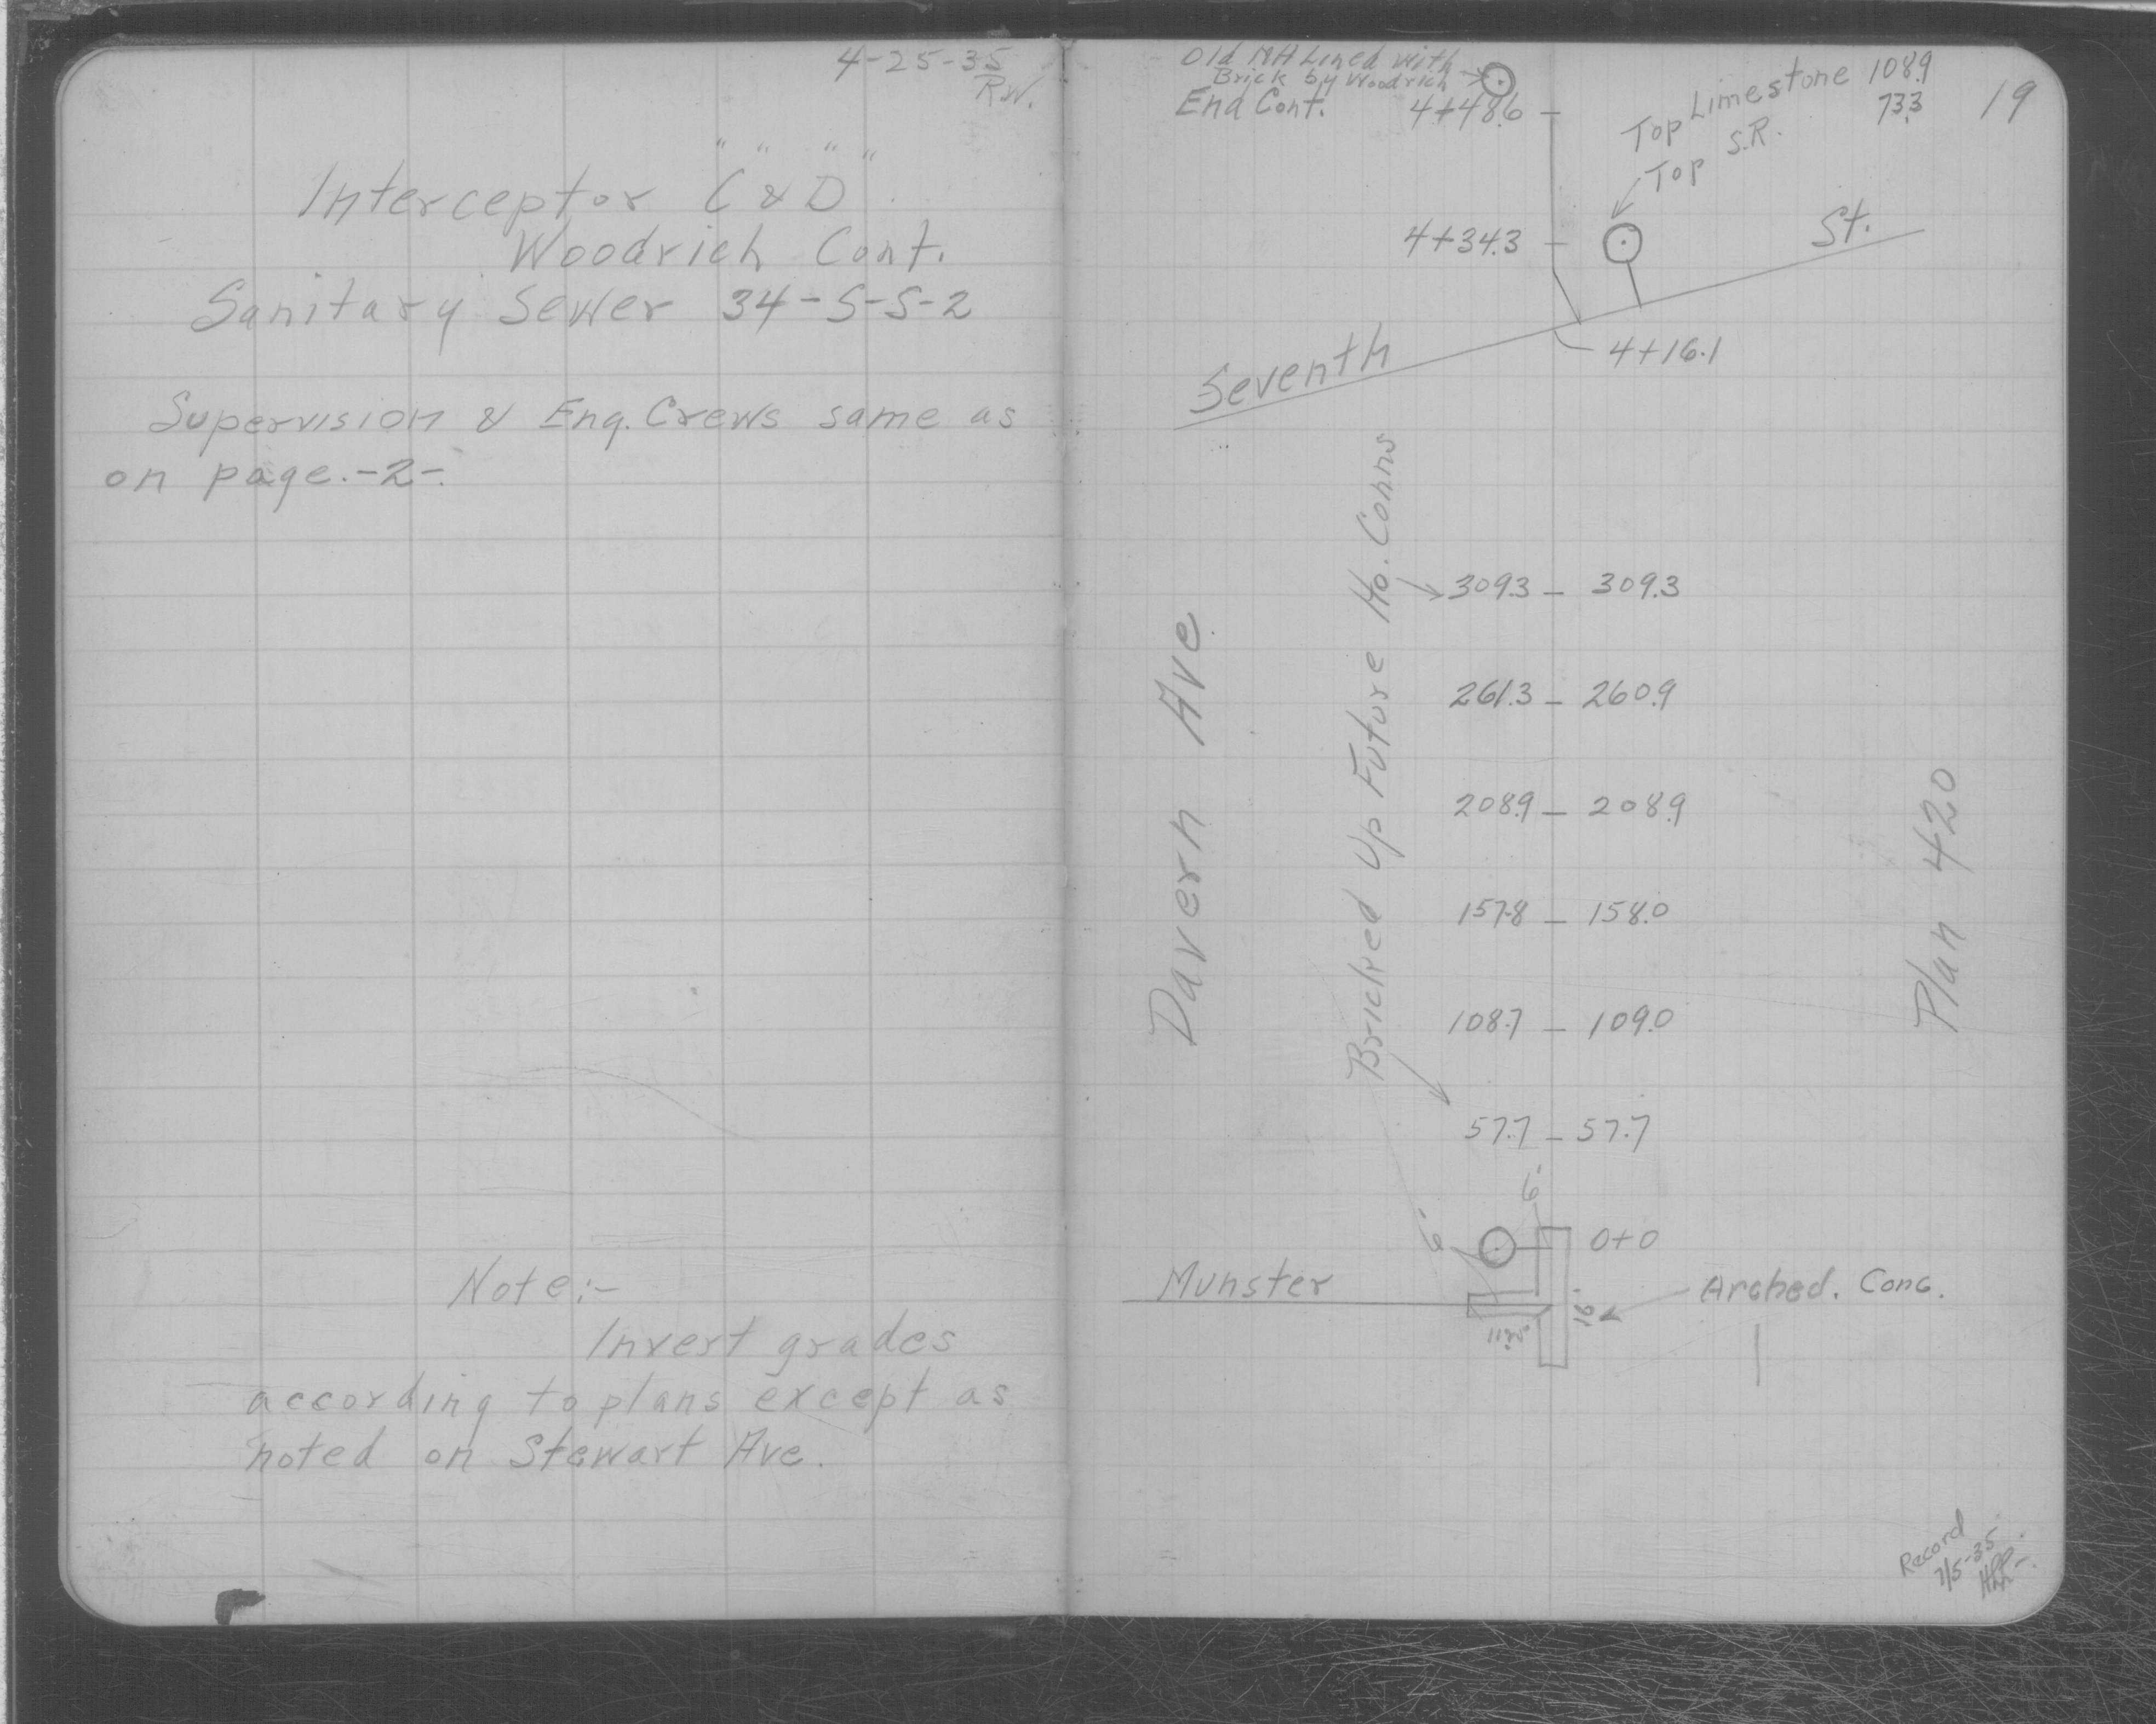 4-25-35
R.W.
Interceptor "C" & "D"
Woodrich Cont.
Sanitary Sewer 34-S-S-2
Supervision & Eng. Crews same as
on page.-2-.
Note:-
Invert grades
according to plans except as
noted on Stewart Ave.
19
Old MH Lined with
Brick by Woodrich
End Cont. 4+48.6
Top Limestone 108.9
Top S.R. 73.3
4+34.3
Seventh St.
4+16.1
Davern Ave.
Bricked Up Future Ho. Conns
309.3 - 309.3
261.3 - 260.9
208.9 - 208.9
157.8 - 158.0
108.7 - 109.0
57.7 - 57.7
Plan 420
6'
6'
0+0
Munster
12'
Arched. Conc.
Record
7/5-35